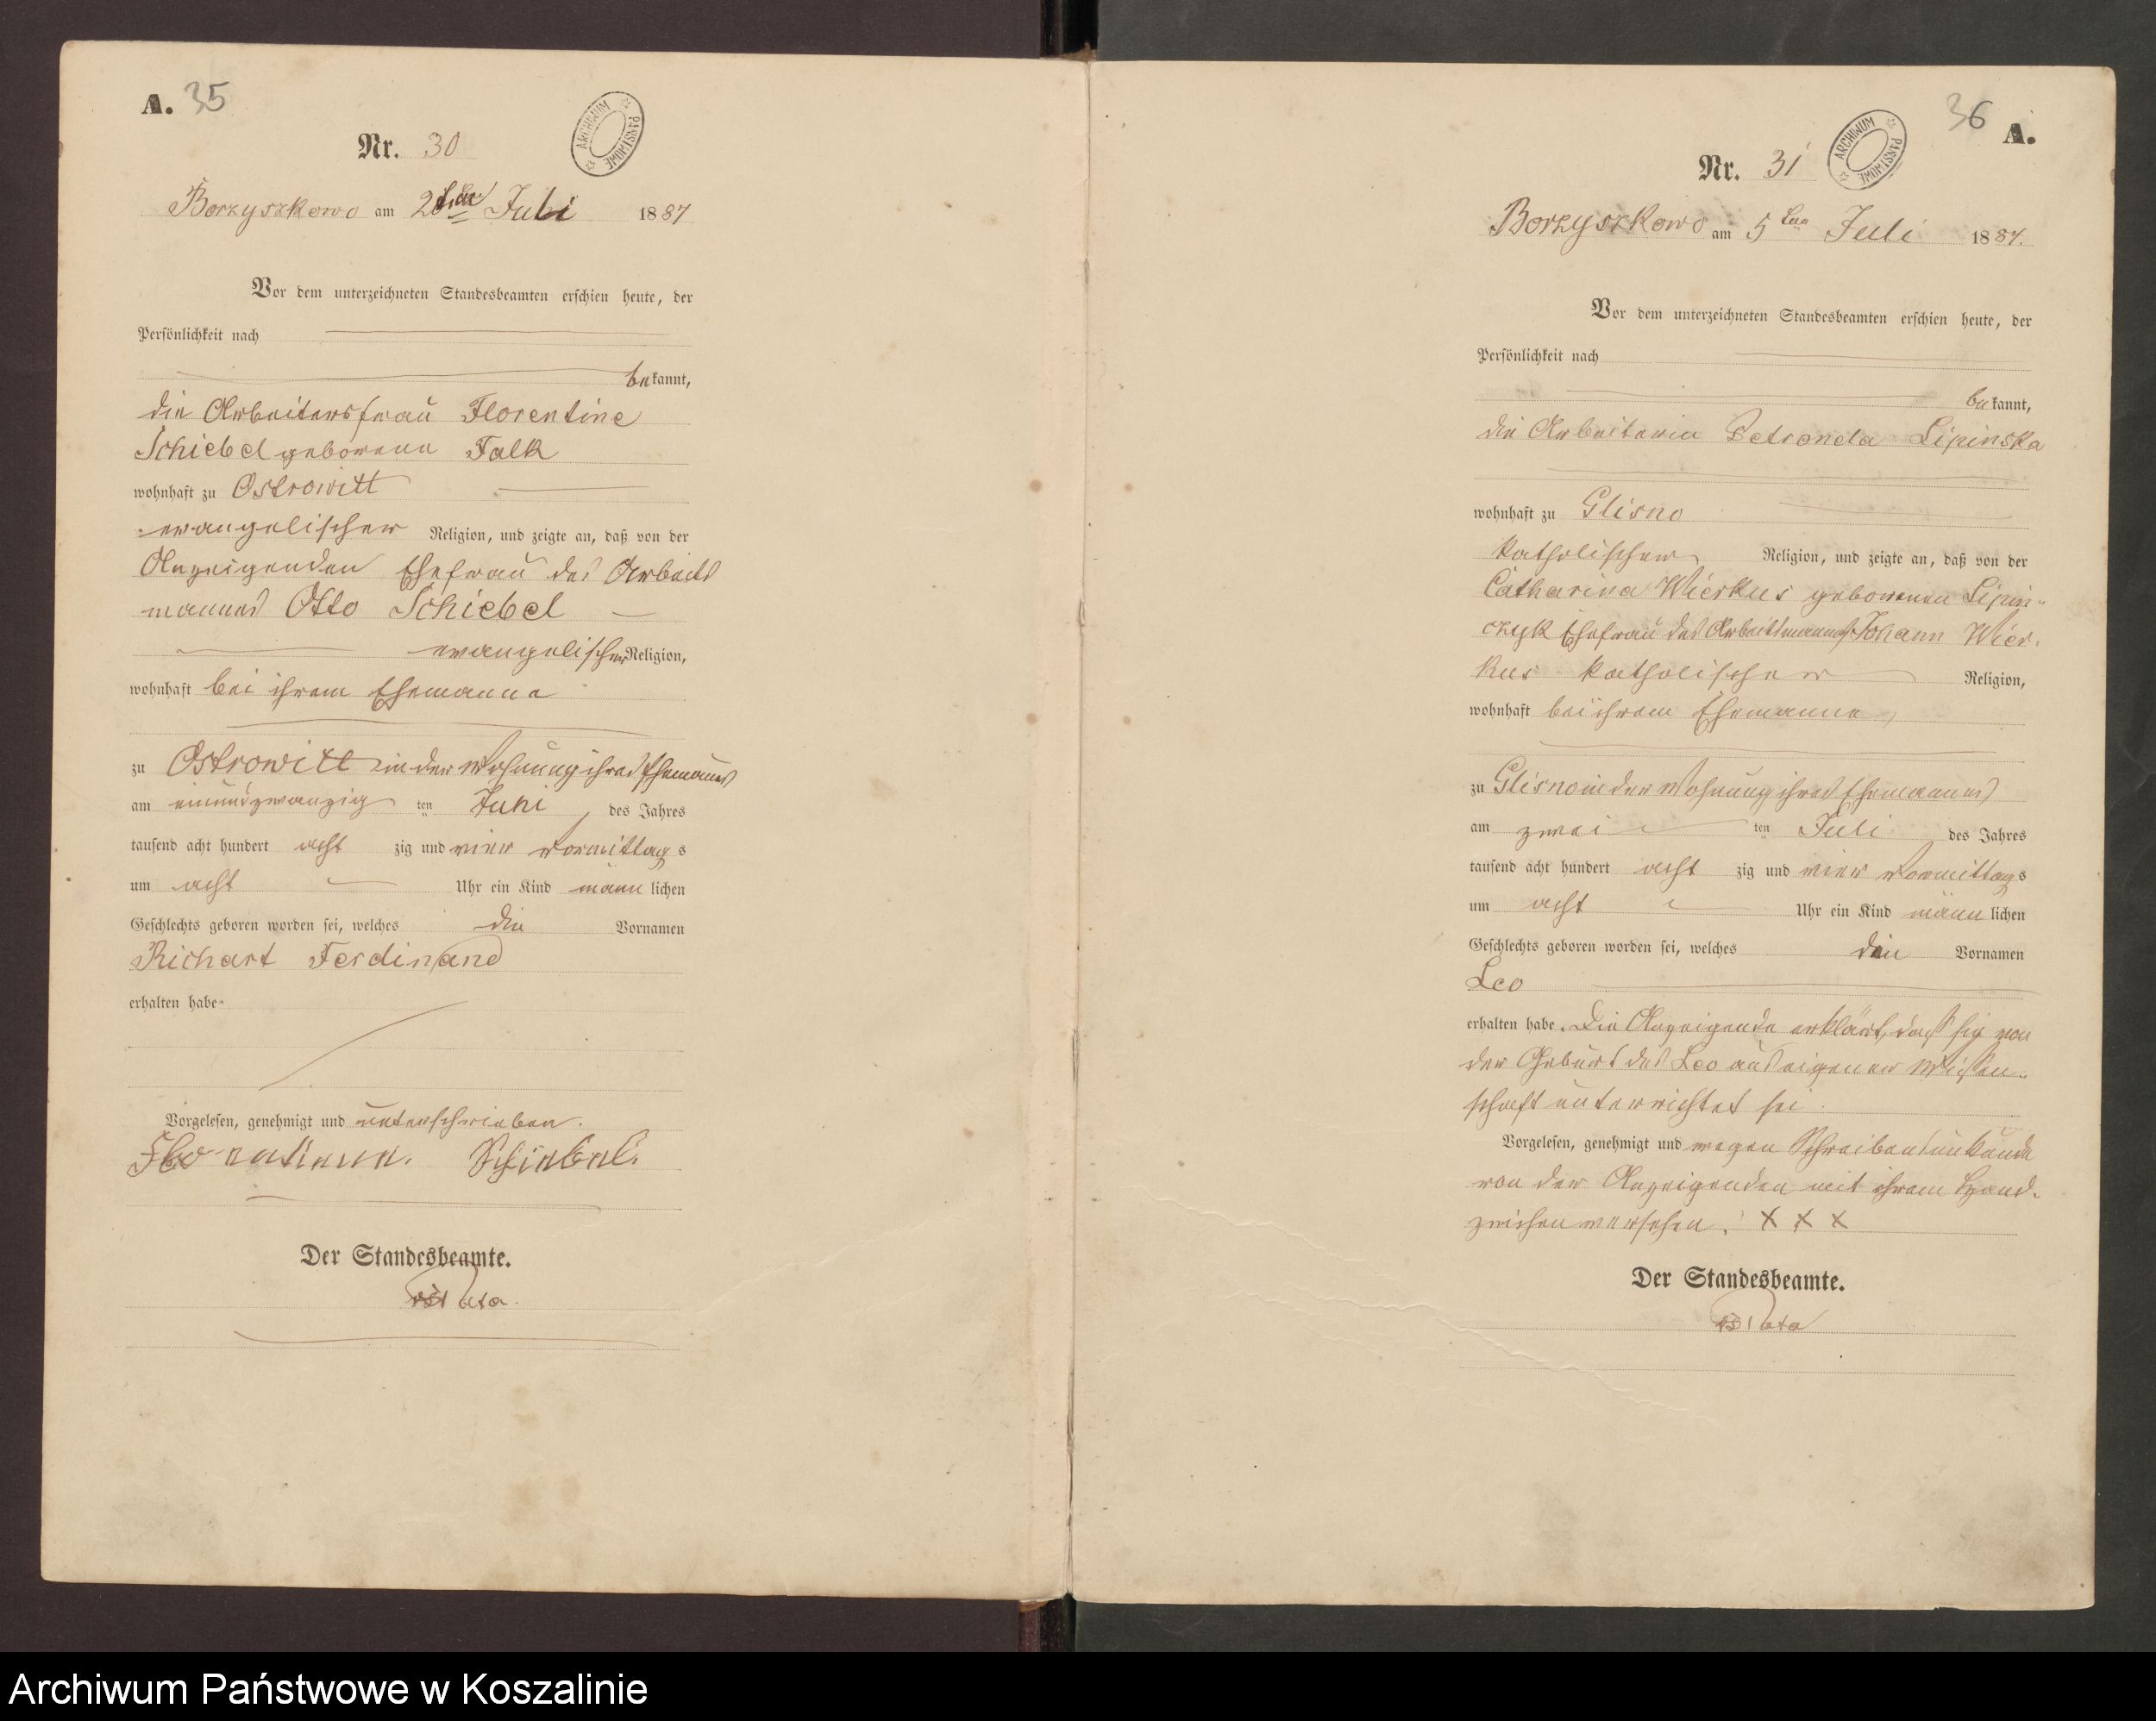 A. 35
ARCHIWUM PAŃSTWOWE
Nr. 30
Borzyszkowo am Juli 1884
Vor dem unterzeichneten Standesbeamten erschien heute, der
Persönlichkeit nach
bekannt,
die Arbeitersfrau Florentine
Schiebel geborene Falk
wohnhaft zu Ostrowitt
evangelischer Religion, und zeigte an, daß von der
Anzeigenden Ehefrau des Arbeits
mannes Otto Schiebel
evangelischer Religion,
wohnhaft bei ihrem Ehemanne
zu Ostrowitt in der Wohnung ihres Ehemannes
am einundzwanzig ten Juni des Jahres
tausend acht hundert acht zig und vier vormittags
um acht Uhr ein Kind männlichen
Geschlechts geboren worden sei, welches die Vornamen
Richart Ferdinand
erhalten habe
Vorgelesen, genehmigt und unterschrieben.
Schiebel.
Der Standesbeamte.
36 A.
ARCHIWUM PAŃSTWOWE
Nr. 31
Borzyszkowo am 5ten Juli 1884.
Vor dem unterzeichneten Standesbeamten erschien heute, der
Persönlichkeit nach
bekannt,
die Arbeiterin Petronela Lipinska
wohnhaft zu Glisno
katholischer Religion, und zeigte an, daß von der
Catharina Wierkus geborenen Lipin-
czyk Ehefrau des Arbeitsmannes Johann Wier-
kus katholischer Religion,
wohnhaft bei ihrem Ehemanne
zu Glisno in der Wohnung ihres Ehemannes
am zwei ten Juli des Jahres
tausend acht hundert acht zig und vier vormittags
um acht Uhr ein Kind männlichen
Geschlechts geboren worden sei, welches den Vornamen
Leo
erhalten habe. Die Anzeigende erklärt, dass sie von
der Geburt des Leo aus eigener Wissen-
schaft unterrichtet sei.
Vorgelesen, genehmigt und wegen Schreibensunkunde
von der Anzeigenden mit ihrem Hand-
zeichen versehen. X X X
Der Standesbeamte.
Archiwum Państwowe w Koszalinie